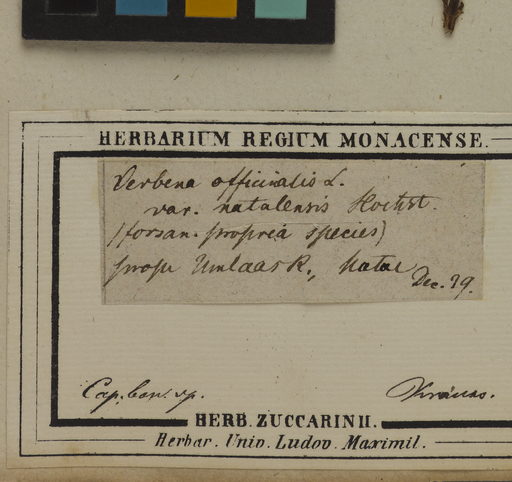 HERBARIUM REGIUM MONACENSE.
Verbena officinalis L.
var. natalensis Hochst.
(forsan propria species)
prope Umlaas R., Natal
Dec. 39.
Cap. bon. sp.
Krauss.
HERB. ZUCCARINII.
Herbar. Univ. Ludov. Maximil.